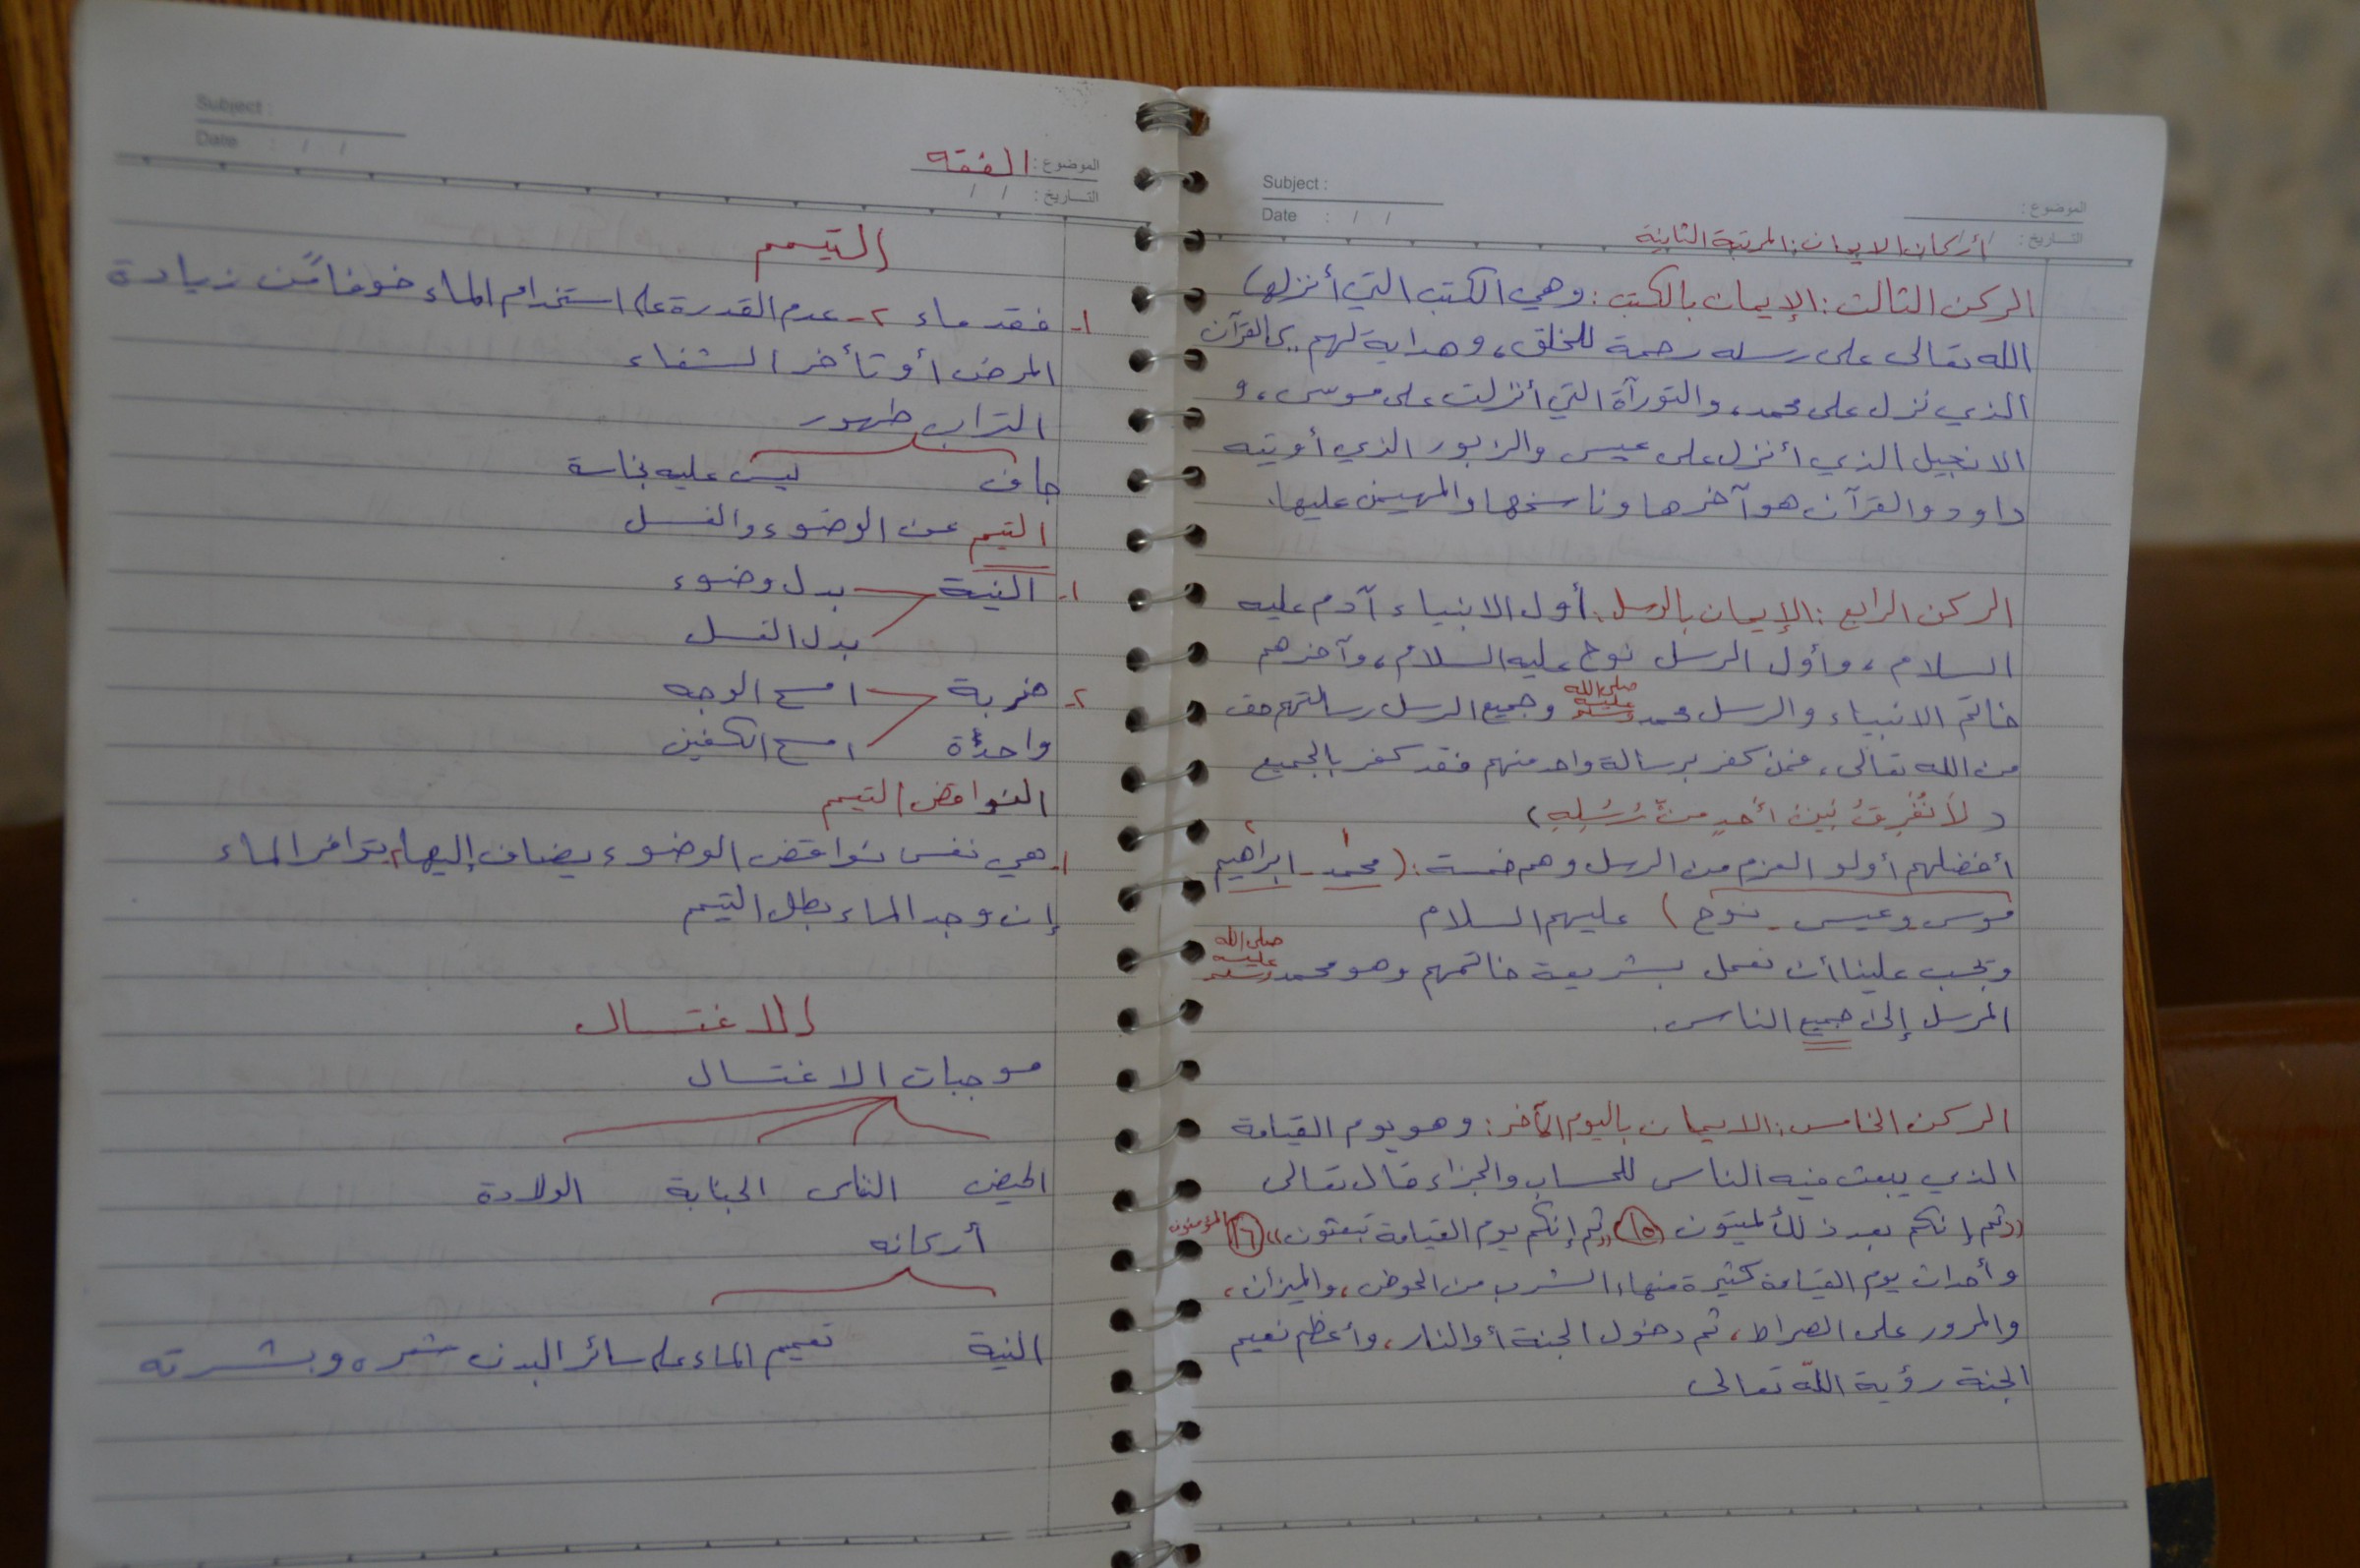 Subject :
الموضوع :
Date : / /
التاريخ : / /
أركان الايمان: المرتبة الثانية
الركن الثالث: الإيمان بالكتب: وهي الكتب التي أنزلها
الله تعالى على رسله رحمة للخلق، وهداية لهم.. كالقرآن
الذي نزل على محمد، والتورآة التي أنزلت على موسى، و
الانجيل الذي أنزل على عيسى والزبور الذي أوتيه
داود والقرآن هو آخرها وناسخها والمهيمن عليها.
الركن الرابع: الإيمان بالرسل: أول الانبياء آدم عليه
السلام، وأول الرسل نوح عليه السلام، وآخرهم
خاتم الانبياء والرسل محمد صلى الله عليه وسلم وجميع الرسل رسالتهم حق
من الله تعالى، فمن كفر برسالة واحد منهم فقد كفر بالجميع
( لَا نُفَرِقُ بَيْنَ أَحَدٍ مِنْ رُسُلِهِ )
١ ٢
أفضلهم أولو العزم من الرسل وهم خمسة: ( محمد - ابراهيم
موسى وعيسى - نوح ) عليهم السلام
ويجب علينا أن نعمل بشريعة خاتمهم وهو محمد صلى الله عليه وسلم
المرسل إلى جميع الناس.
الركن الخامس: الايمان باليوم الآخر: وهو يوم القيامة
الذي يبعث فيه الناس للحساب والجزاء قال تعالى
((ثم إنكم بعد ذلك لميتون (١٥) ثم إنكم يوم القيامة تبعثون)) (١٦) المؤمنون
وأحداث يوم القيامة كثيرة منها، الشرب من الحوض، والميزان،
والمرور على الصراط، ثم دخول الجنة أو النار، وأعظم نعيم
الجنة رؤية الله تعالى
Subject :
الموضوع : الفقه
Date : / /
التاريخ : / /
التيمم
١- فقد ماء ٢- عدم القدرة على استخدام الماء خوفاً من زيادة
المرض أو تأخر الشفاء
التراب طهور
جاف ليس عليه نجاسة
التيمم عن الوضوء والغسل
١- النية بدل وضوء
بدل الغسل
٢- ضربة امسح الوجه
واحدة امسح الكفين
النواقض التيمم
١- هي نفس نواقض الوضوء يضاف إليها، توافر الماء
إن وجد الماء بطل التيمم
الاغتسال
موجبات الاغتسال
الحيض النفاس الجنابة الولادة
أركانه
النية تعميم الماء على سائر البدن شعره وبشرته